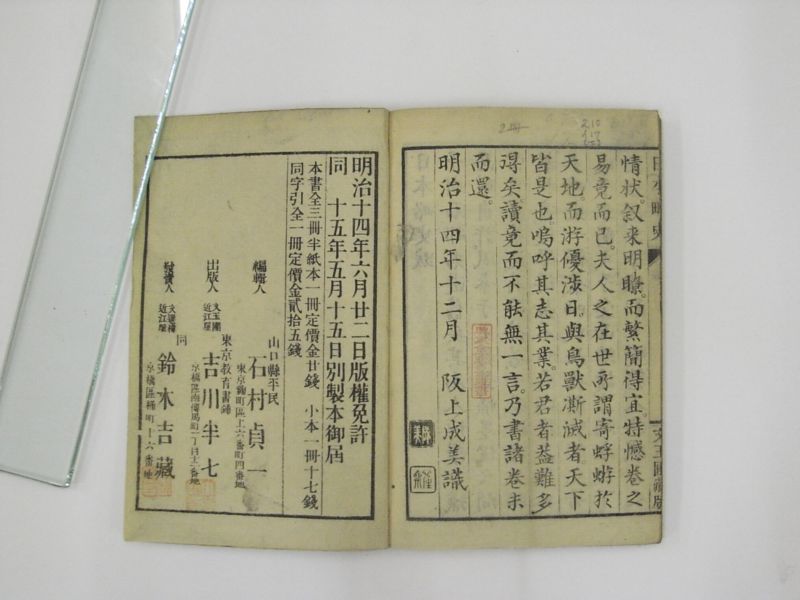 情狀。叙来明瞭。而繁簡得宜。特憾卷之
易竟而已。夫人之在世。所謂寄蜉蝣於
天地。而游優渉日。與鳥獸澌滅者。天下
皆是也。嗚呼其志其業。若君者。益難多
得矣。讀竟而不能無一言。乃書諸卷末
而還。
明治十四年十二月 阪上成美識
文玉圃藏版
明治十四年六月廿二日版權免許
同 十五年五月十五日別製本御届
本書全三冊半紙本一冊定價金廿錢 小本一冊十七錢
同字引全一冊定價金貳拾五錢
山口縣平民
編輯人 石村貞一
東京麹町區上六番町四番地
東京教育書鋪
出版人 文玉圃 近江屋 吉川半七
京橋區南傳馬町一丁目十二番地
同
文選樓 近江屋 鈴木吉藏
京橋區桶町十六番地